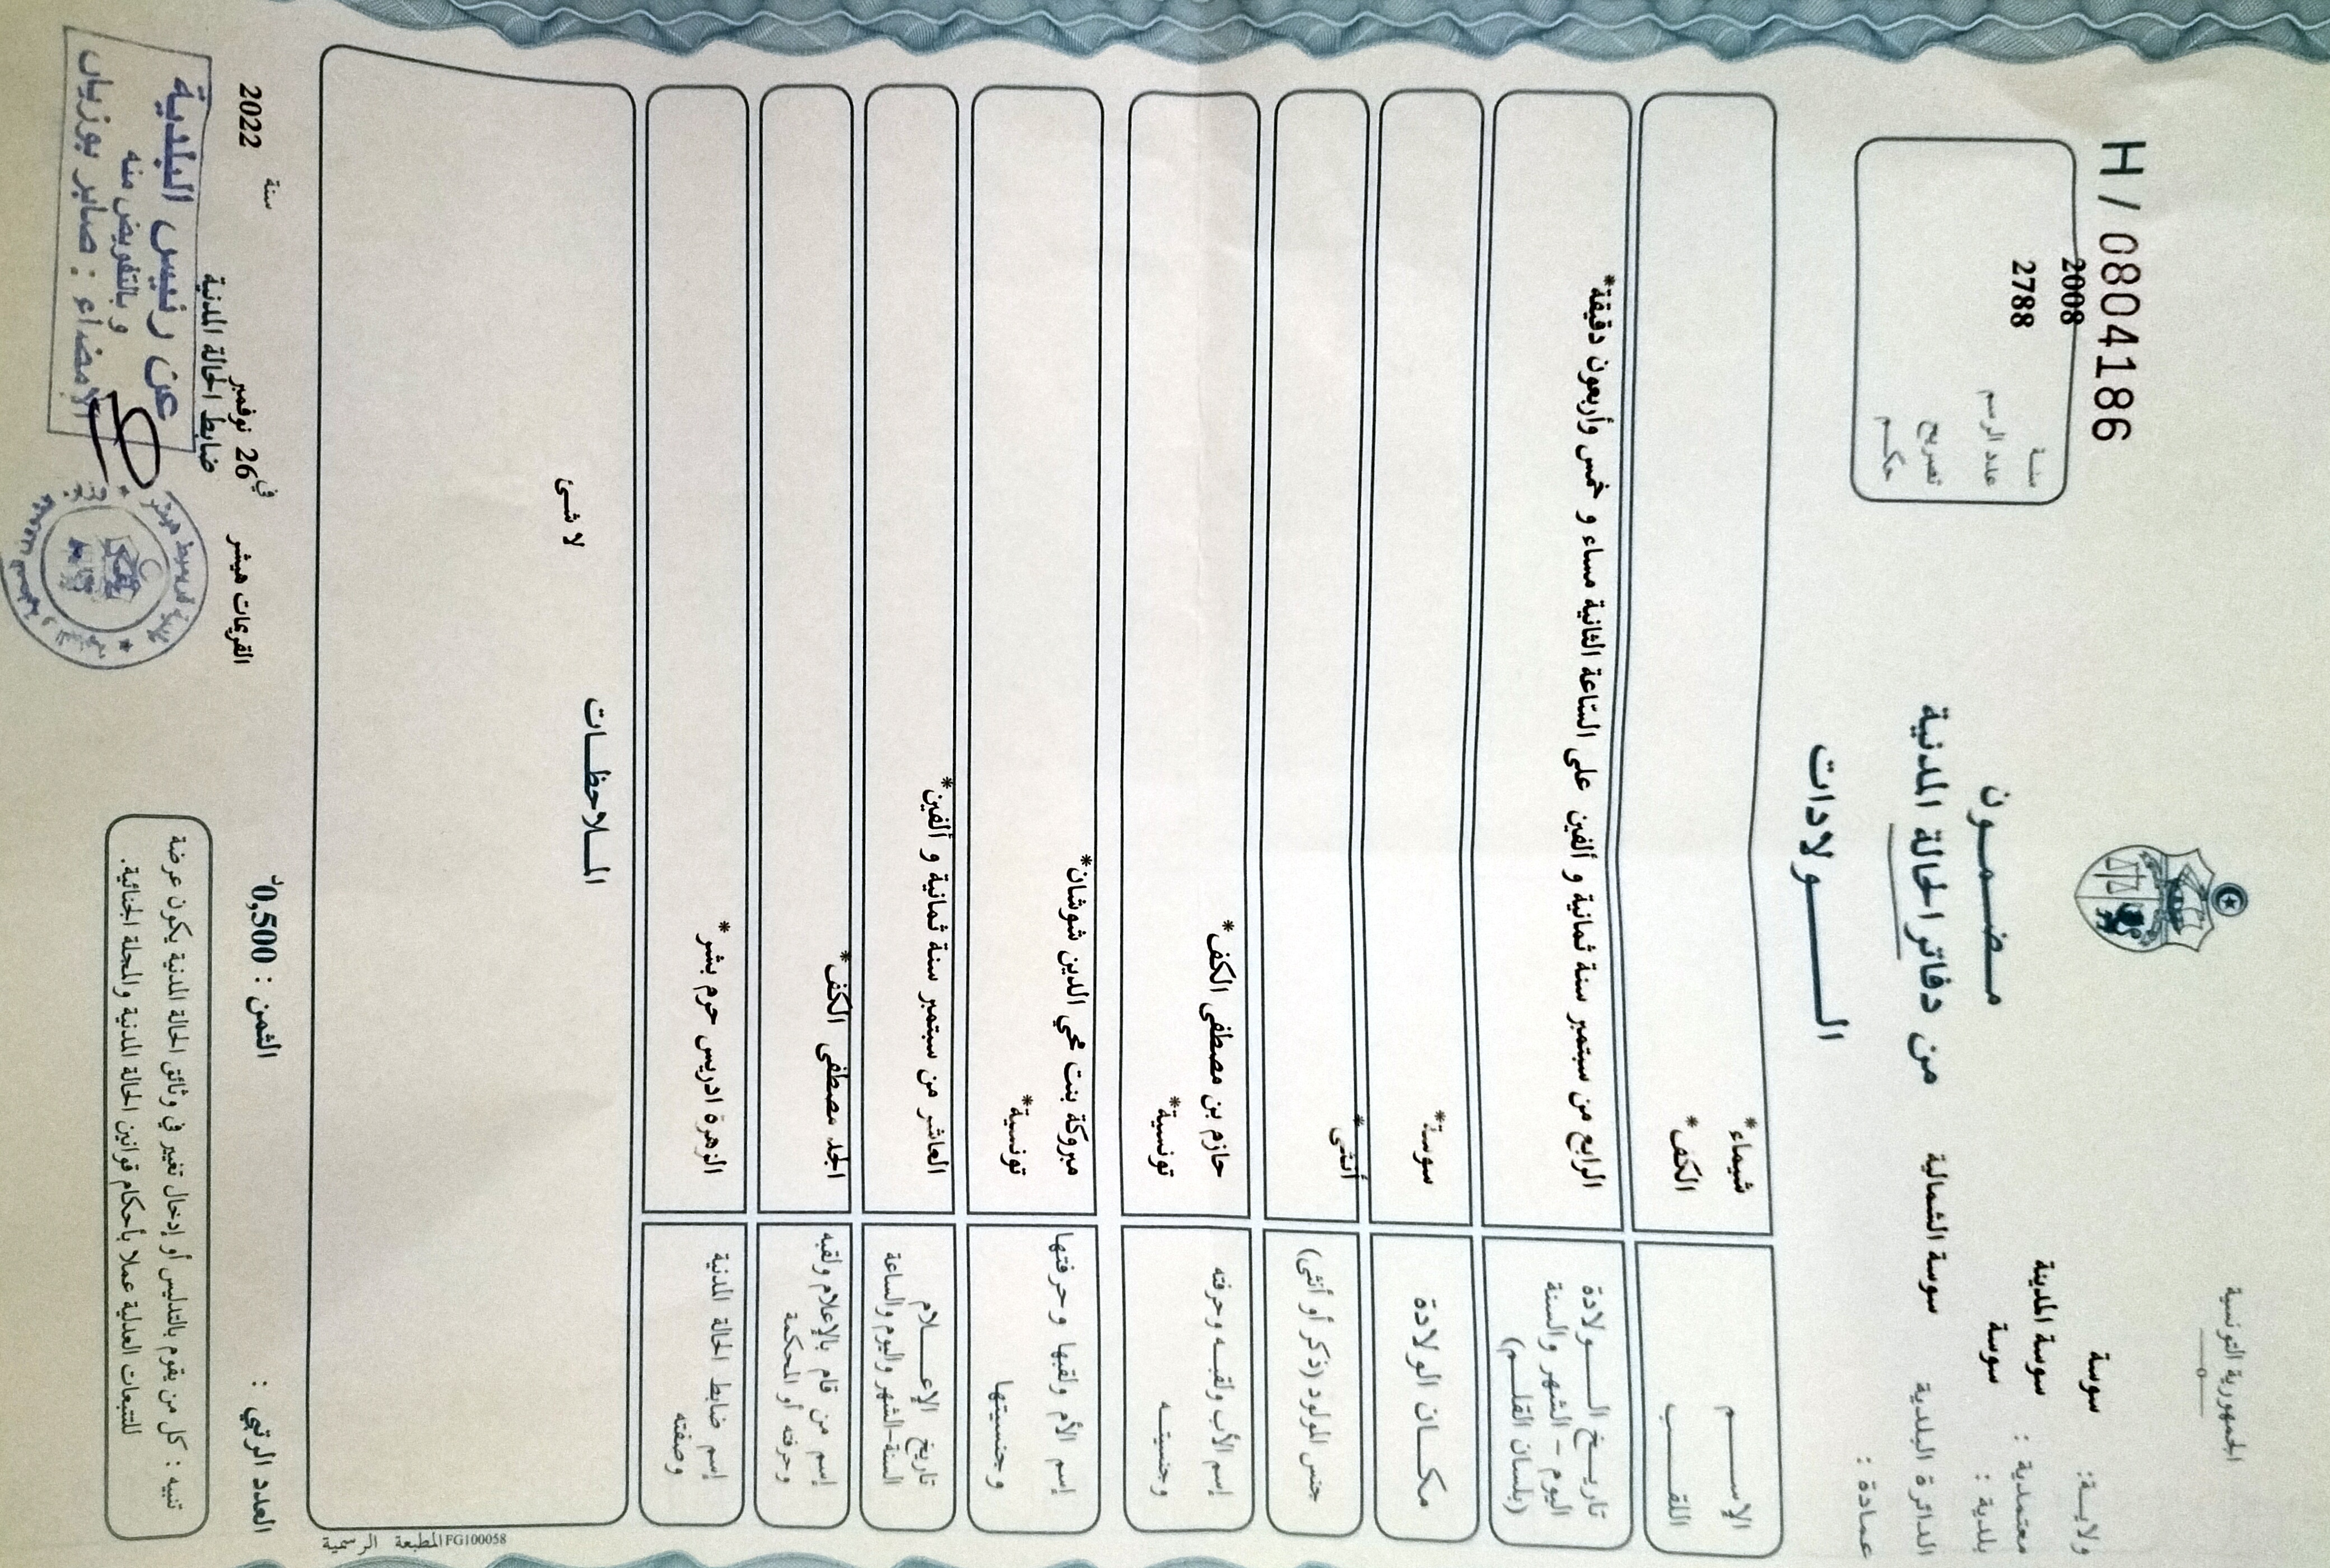 الجمهورية التونسية
ولايـة: سوسة
معتمدية : سوسة المدينة
بلدية : سوسة
الدائرة البلدية سوسة الشمالية
عمادة :
H / 0804186
سنـة 2008
عدد الرسم 2788
تصريح
حكـم
مـضـمـون
من دفاتر الحالة المدنية
الـولادات
الإسـم شيماء*
اللقـب الكف*
تاريـخ الـولادة الرابع من سبتمبر سنة ثمانية و ألفين على الساعة الثانية مساء و خمس وأربعون دقيقة*
اليوم – الشهر والسنة
(بلسان القلـم)
مكـان الولادة سوسة*
جنس المولود (ذكر أو أنثى) أنثى*
إسم الأب ولقبـه وحرفته حازم بن مصطفى الكف*
وجنسيتـه تونسية*
إسم الأم ولقبها وحرفتها مبروكة بنت محي الدين شوشان*
وجنسيتها تونسية*
تاريخ الإعـلام العاشر من سبتمبر سنة ثمانية و ألفين*
السنة-الشهر واليوم والساعة
إسم من قام بالإعلام ولقبه الجد مصطفى الكف*
وحرفته أو المحكمة
إسم ضابط الحالة المدنية الزهرة ادريس حرم بشر*
وصفته
المـلاحظـات
لا شئ
المطبعة الرسمية FG100058
العدد الرتبي : الثمن : 0,500د القريمات هيشر في 26 نوفمبر سنة 2022
ضابط الحالة المدنية
تنبيه : كل من يقوم بالتدليس أو إدخال تغيير في وثائق الحالة المدنية يكون عرضة
للتتبعات العدلية عملا بأحكام قوانين الحالة المدنية والمجلة الجنائية.
عن رئيس البلدية
وبالتفويض منه
الإمضاء : صابر بوزيان